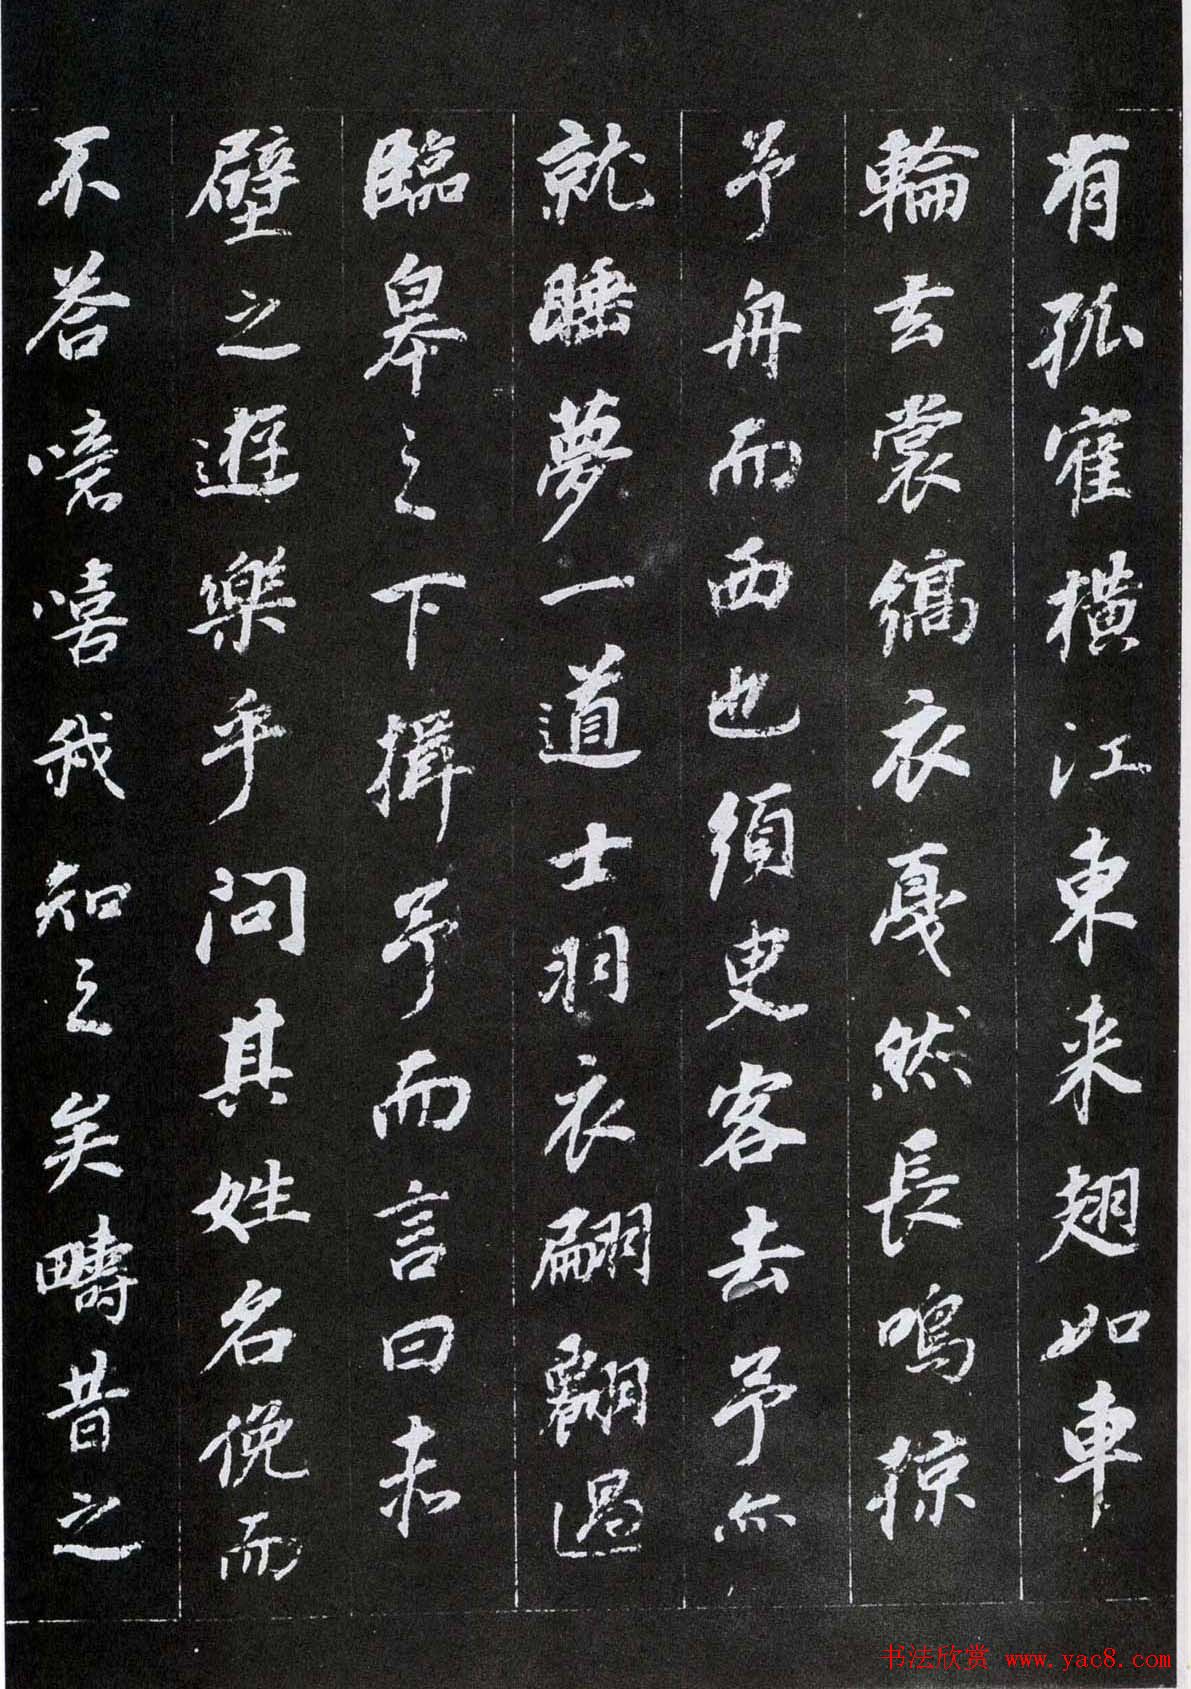 有孤隺横江東来翅如車
輪玄裳縞衣戛然長鳴掠
予舟而西也須臾客去予亦
就睡夢一道士羽衣翩翻過
臨皋之下揖予而言曰赤
壁之遊樂乎問其姓名俛而
不荅噫嘻我知之矣疇昔之
书法欣赏 www.yac8.com